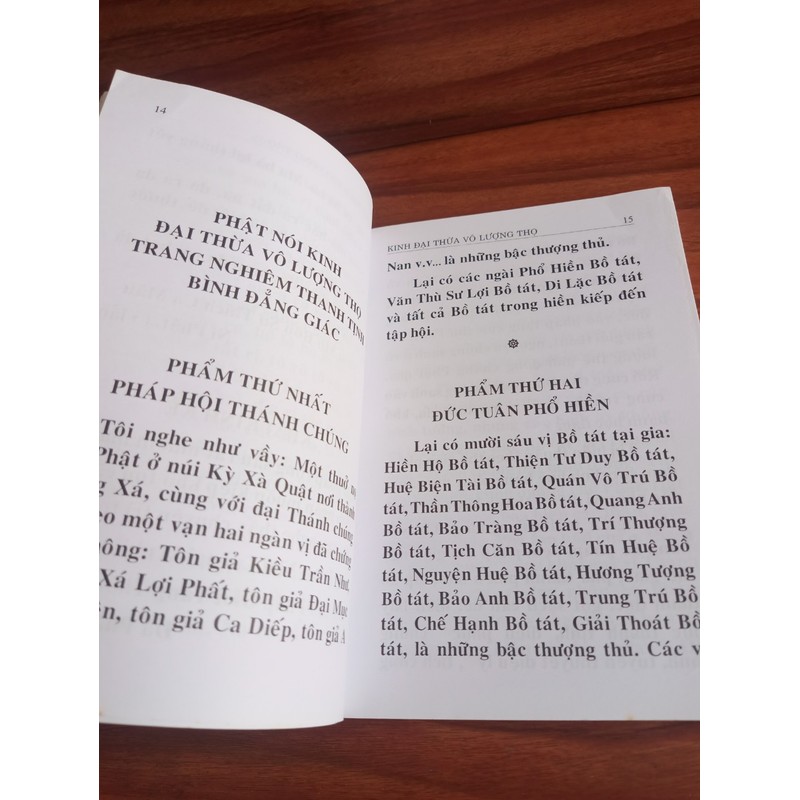 14
PHẬT NÓI KINH
ĐẠI THỪA VÔ LƯỢNG THỌ
TRANG NGHIÊM THANH TỊNH
BÌNH ĐẲNG GIÁC
PHẨM THỨ NHẤT
PHÁP HỘI THÁNH CHÚNG
Tôi nghe như vầy: Một thuở
Phật ở núi Kỳ Xà Quật nơi thành
Xá, cùng với đại Thánh chúng
một vạn hai ngàn vị đã chứng
Tôn giả Kiều Trần Như
Xá Lợi Phất, tôn giả Đại Mục
tôn giả Ca Diếp, tôn giả A
15
KINH ĐẠI THỪA VÔ LƯỢNG THỌ
Nan v.v... là những bậc thượng thủ.
Lại có các ngài Phổ Hiền Bồ tát,
Văn Thù Sư Lợi Bồ tát, Di Lặc Bồ tát
và tất cả Bồ tát trong hiền kiếp đến
tập hội.
PHẨM THỨ HAI
ĐỨC TUÂN PHỔ HIỀN
Lại có mười sáu vị Bồ tát tại gia:
Hiền Hộ Bồ tát, Thiện Tư Duy Bồ tát,
Huệ Biện Tài Bồ tát, Quán Vô Trú Bồ
tát, Thần Thông Hoa Bồ tát, Quang Anh
Bồ tát, Bảo Tràng Bồ tát, Trí Thượng
Bồ tát, Tịch Căn Bồ tát, Tín Huệ Bồ
tát, Nguyện Huệ Bồ tát, Hương Tượng
Bồ tát, Bảo Anh Bồ tát, Trung Trú Bồ
tát, Chế Hạnh Bồ tát, Giải Thoát Bồ
tát, là những bậc thượng thủ. Các v